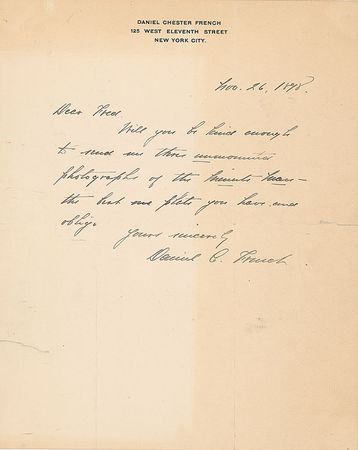 DANIEL CHESTER FRENCH
125 WEST ELEVENTH STREET
NEW YORK CITY.
Nov. 26, 1898.
Dear Fred,
Will you be kind enough
to send me three unmounted
photographs of the Minute Man -
the best one plate you have and
oblige
Yours sincerely
Daniel C. French